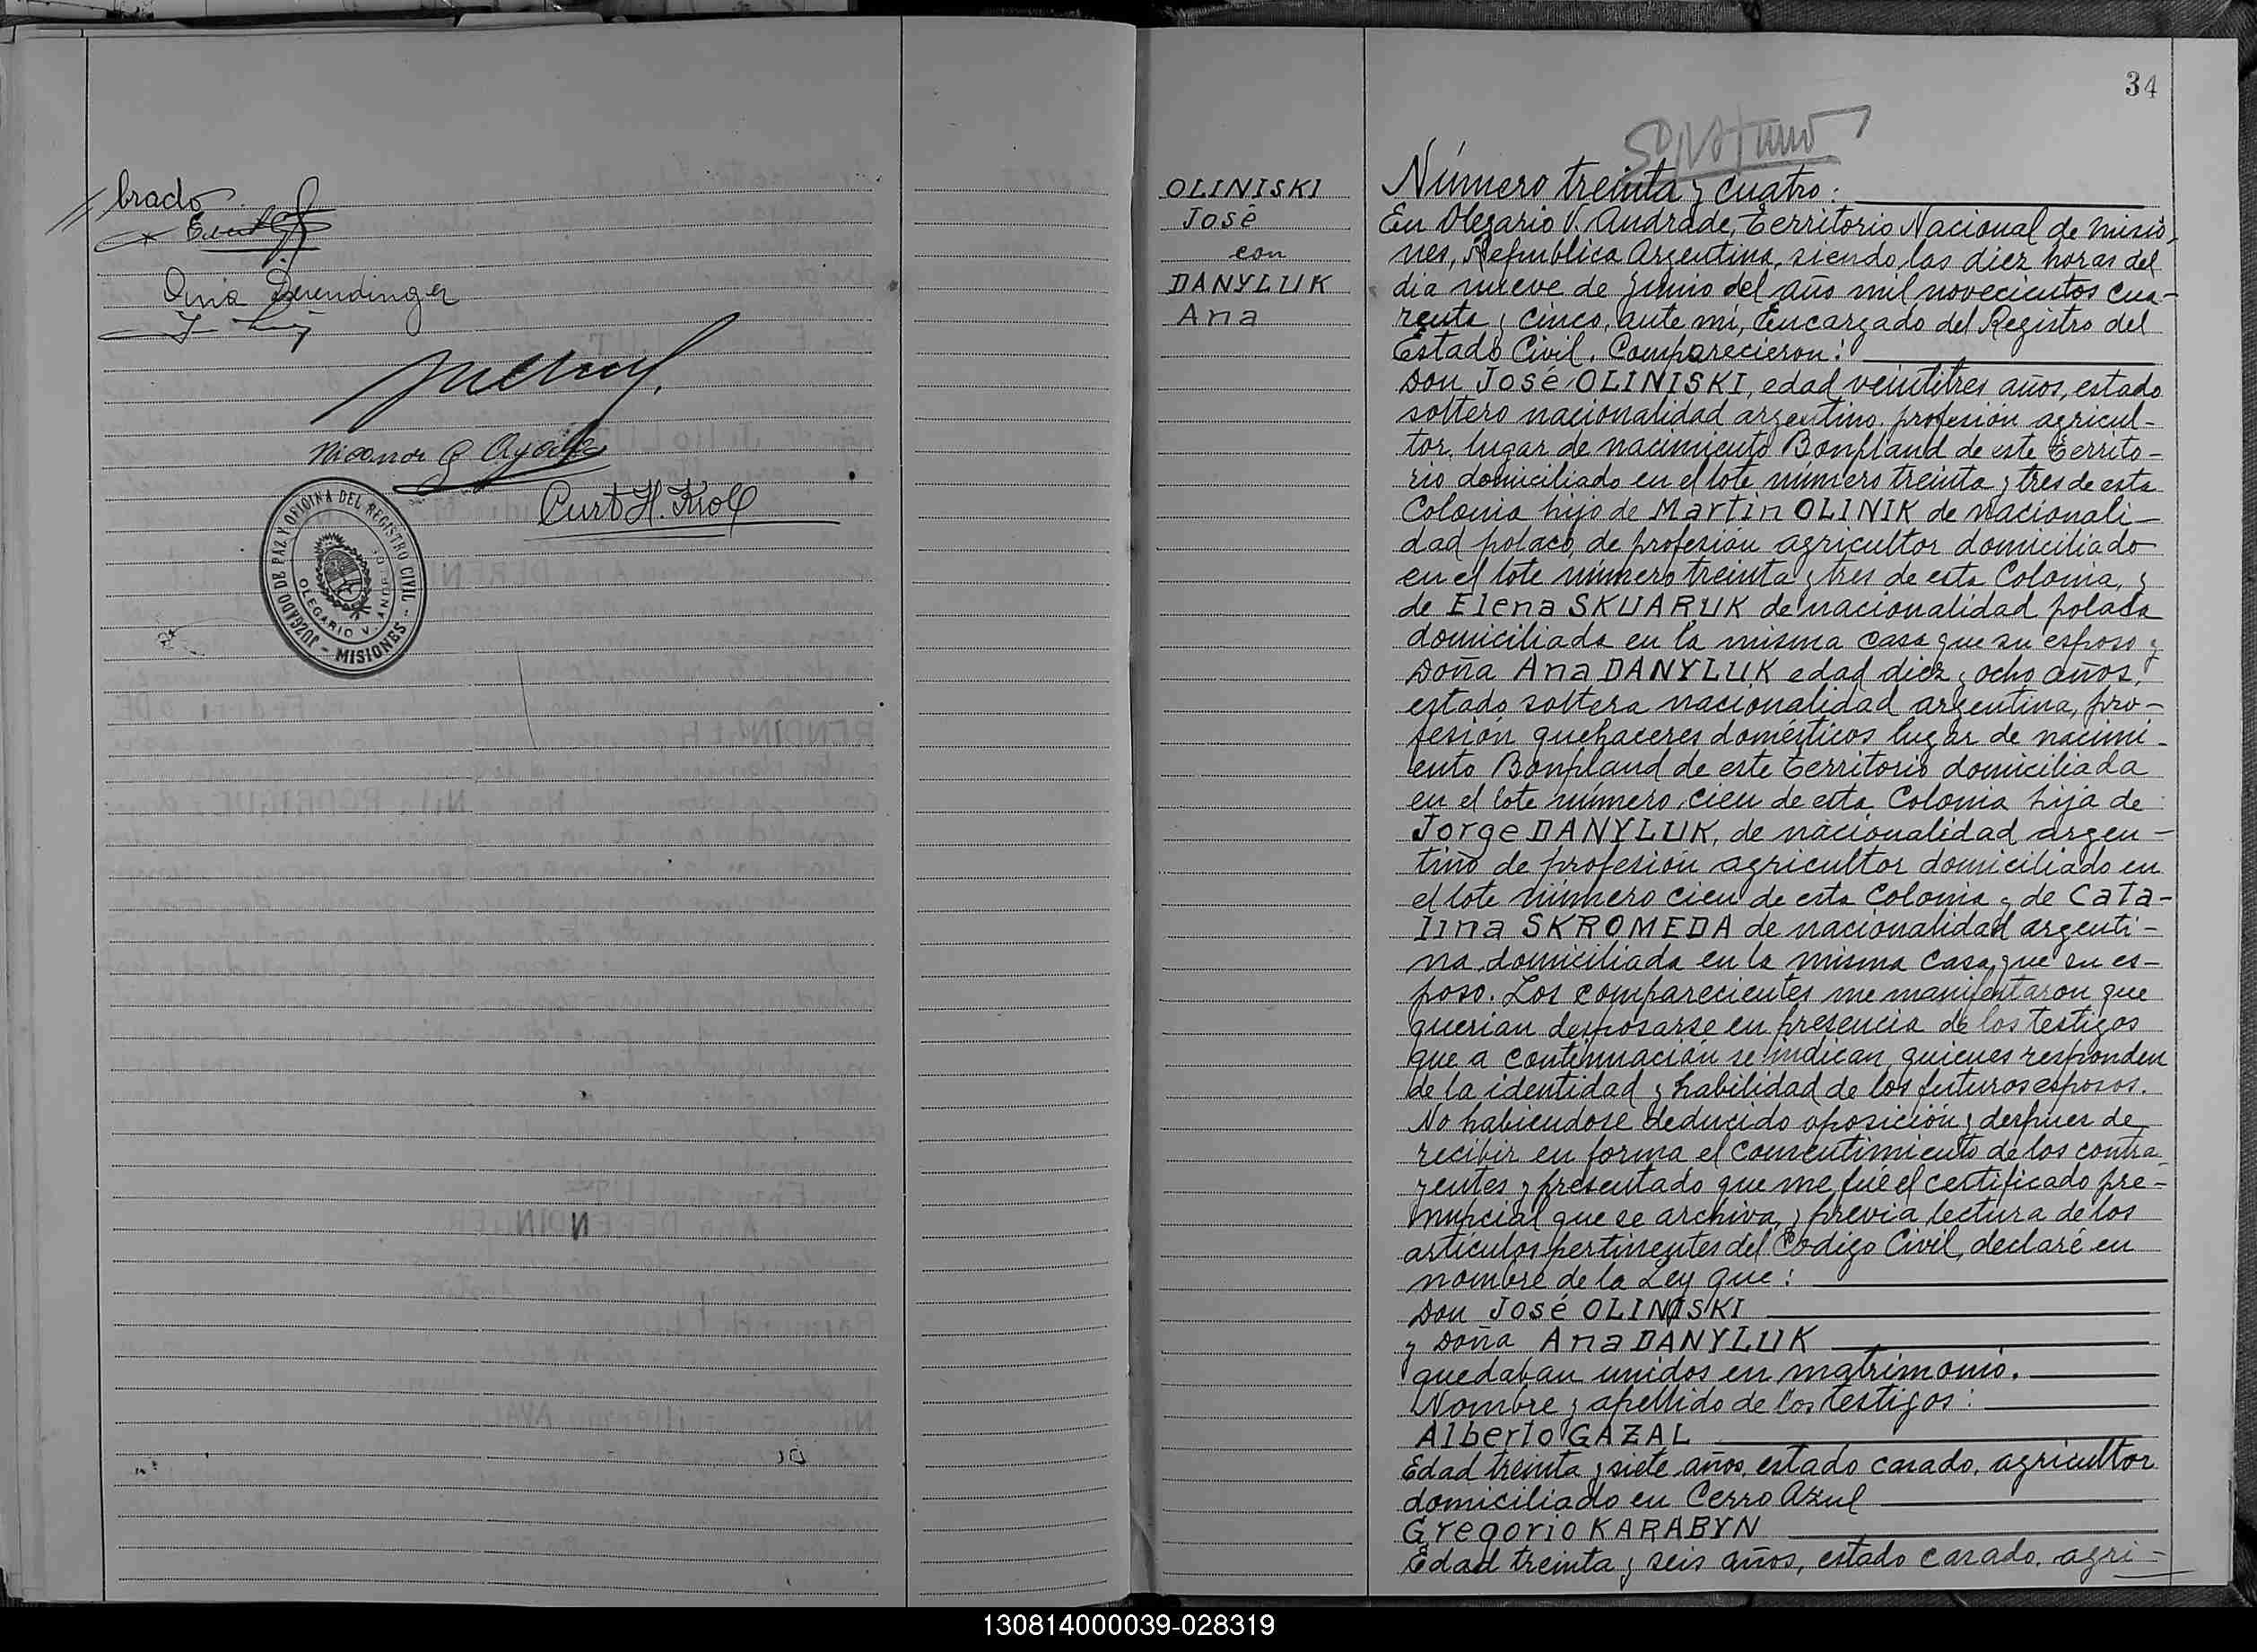 34
brado
Ana Derendinger
Nicanor G Ayala
Curt H. Krol
JUZGADO DE PAZ Y OFICINA DEL REGISTRO CIVIL - MISIONES -
OLEGARIO V. ANDRADE
OLINISKI
José
con
DANYLUK
Ana
Número treinta y cuatro:
En Olegario V. Andrade, Territorio Nacional de Misio-
nes, República Argentina, siendo las diez horas del
dia nueve de Junio del año mil novecientos cua-
renta y cinco, ante mi, Encargado del Registro del
Estado Civil. Comparecieron:
Don José OLINISKI, edad veintitres años, estado
soltero nacionalidad argentino, profesión agricul-
tor, lugar de nacimiento Bonpland de este territo-
rio domiciliado en el lote número treinta y tres de esta
Colonia hijo de Martin OLINIK de nacionali-
dad polaco, de profesión agricultor domiciliado
en el lote número treinta y tres de esta Colonia, y
de Elena SKUARUK de nacionalidad polaca
domiciliada en la misma casa que su esposo y
Doña Ana DANYLUK edad diez y ocho años,
estado soltera nacionalidad argentina, pro-
fesión quehaceres domésticos lugar de nacimi-
ento Bonpland de este territorio domiciliada
en el lote número cien de esta Colonia hija de
Jorge DANYLUK, de nacionalidad argen-
tino de profesión agricultor domiciliado en
el lote número cien de esta Colonia y de Cata-
lina SKROMEDA de nacionalidad argenti-
na, domiciliada en la misma casa que su es-
poso. Los comparecientes me manifestaron que
querian desposarse en presencia de los testigos
que a continuación se indican, quienes responden
de la identidad y habilidad de los futuros esposos.
No habiendose deducido oposición y despues de
recibir en forma el consentimiento de los contra-
yentes y presentado que me fué el certificado pre-
nupcial que se archiva, y previa lectura de los
artículos pertinentes del Código Civil, declaré en
nombre de la Ley que:
Don José OLINISKI
y Doña Ana DANYLUK
quedaban unidos en matrimonio.
Nombre y apellido de los testigos:
Alberto GAZAL
Edad treinta y siete años, estado casado, agricultor
domiciliado en Cerro Azul
Gregorio KARABYN
Edad treinta y seis años, estado casado, agri-
130814000039-028319